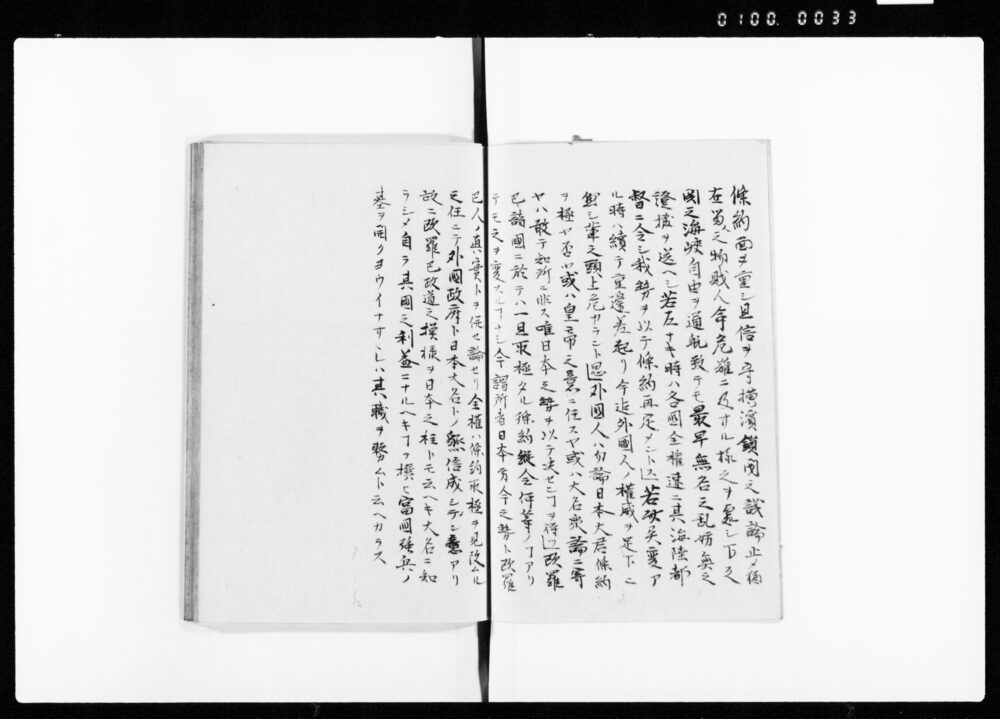 0100. 0033
條約面ヲ重シ且信ヲ守横濱鎖閉之議論止メ橋
在留之物貨人命危難ニ及サル様之ヲ置シ下之
関之海峡自由ヲ通航致テモ最早無名之乱妨無之
證拠ヲ送ヘシ若左ナキ時ハ各國全権速ニ其海陸都
督ニ令シ栽勢ヲ以テ條約再定メント
ル時ハ續テ重邊差起リ今迄外國人ノ權威ヲ足下ニ
シ輩之頭上危カラント思外國人ハ勿論日本大君條約
ヲ極ヤ否ヤ或ハ皇帝之意ニ任スヤ或ハ大名衆論ニ寄
ヤハ敢テ知所ニ非ス唯日本之勢ヲ以テ决セヿヲ待 欧羅
巴諸國ニ於テハ一旦取極タル條約縦全件
テモ之ヲ変スルヿナシ今謂所者日本方今之勢ト欧羅
巴人ノ真實トヲ併セ論セリ全権ハ條約取極ヲ見改ムル
之任ニテ外國政府ト日本大名トノ 信成シデン意アリ
故ニ欧羅巴政道之模様ヲ日本之柱トモ云ヘキ大名ニ知
ラシメ自ラ其國之利益ニナルヘキヿヲ撰ヒ富國強兵ノ
基ヲ開クヨウイナサヽレハ其職ヲ務ムト云ヘカラス